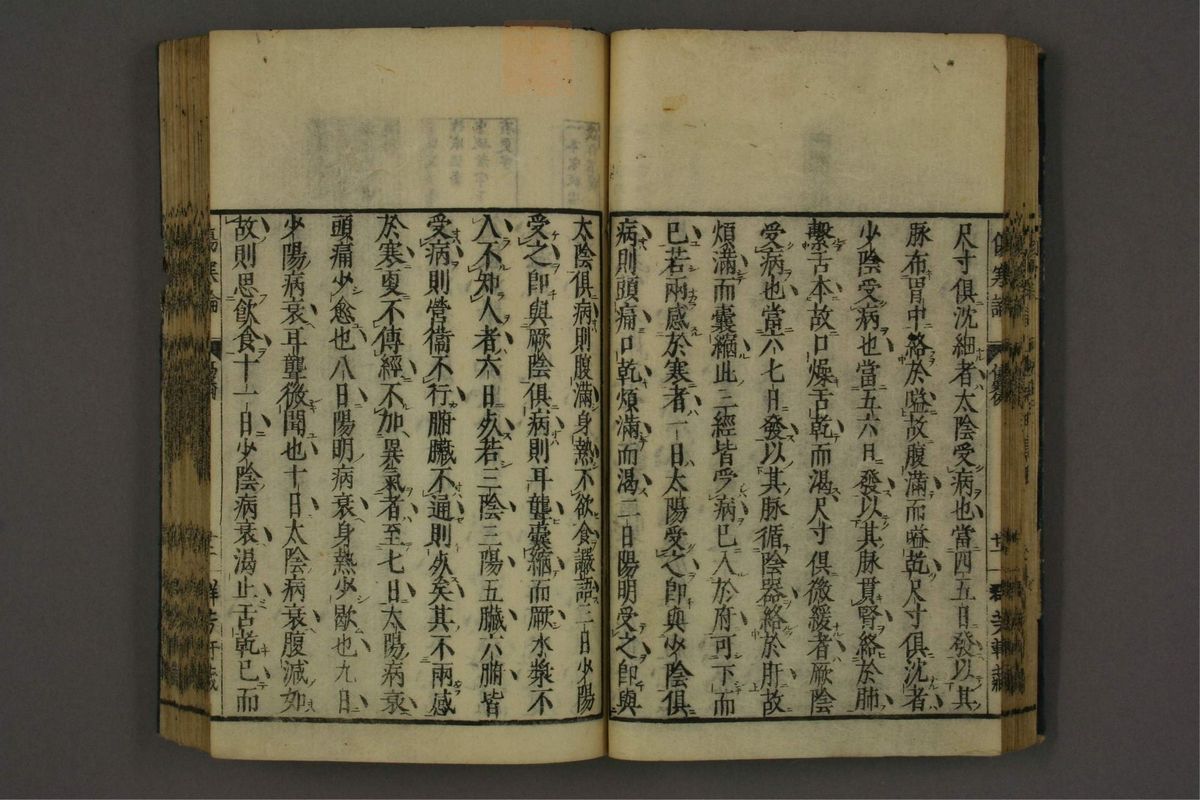 尺寸俱沈細者太陰受病也當四五日發以其
脉布胃中絡於嗌故腹滿而嗌乾尺寸俱沈者
少陰受病也當五六日發以其脉貫腎絡於肺
繫舌本故口燥舌乾而渴尺寸俱微緩者厥陰
受病也當六七日發以其脉循陰器絡於肝故
煩滿而囊縮此三經皆受病已入於府可下而
已若兩感於寒者一日太陽受之卽與少陰俱
病則頭痛口乾煩滿而渴二日陽明受之卽與
太陰俱病則腹滿身熱不欲食讝語三日少陽
受之卽與厥陰俱病則耳聾囊縮而厥水漿不
入不知人者六日死若三陰三陽五臟六腑皆
受病則營衞不行腑臟不通則死矣其不兩感
於寒更不傳經不加異氣者至七日太陽病衰
頭痛少愈也八日陽明病衰身熱少歇也九日
少陽病衰耳聾微聞也十日太陰病衰腹減如
故則思飮食十一日少陰病衰渴止舌乾已而
傷寒論